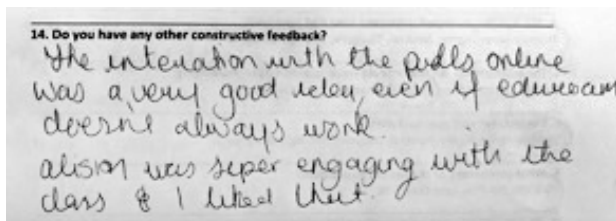 14. Do you have any other constructive feedback?
The interation with the polls online
was a very good idea, even if eduroam
doesnt always work.
alison was super engaging with the
class & I liked that.